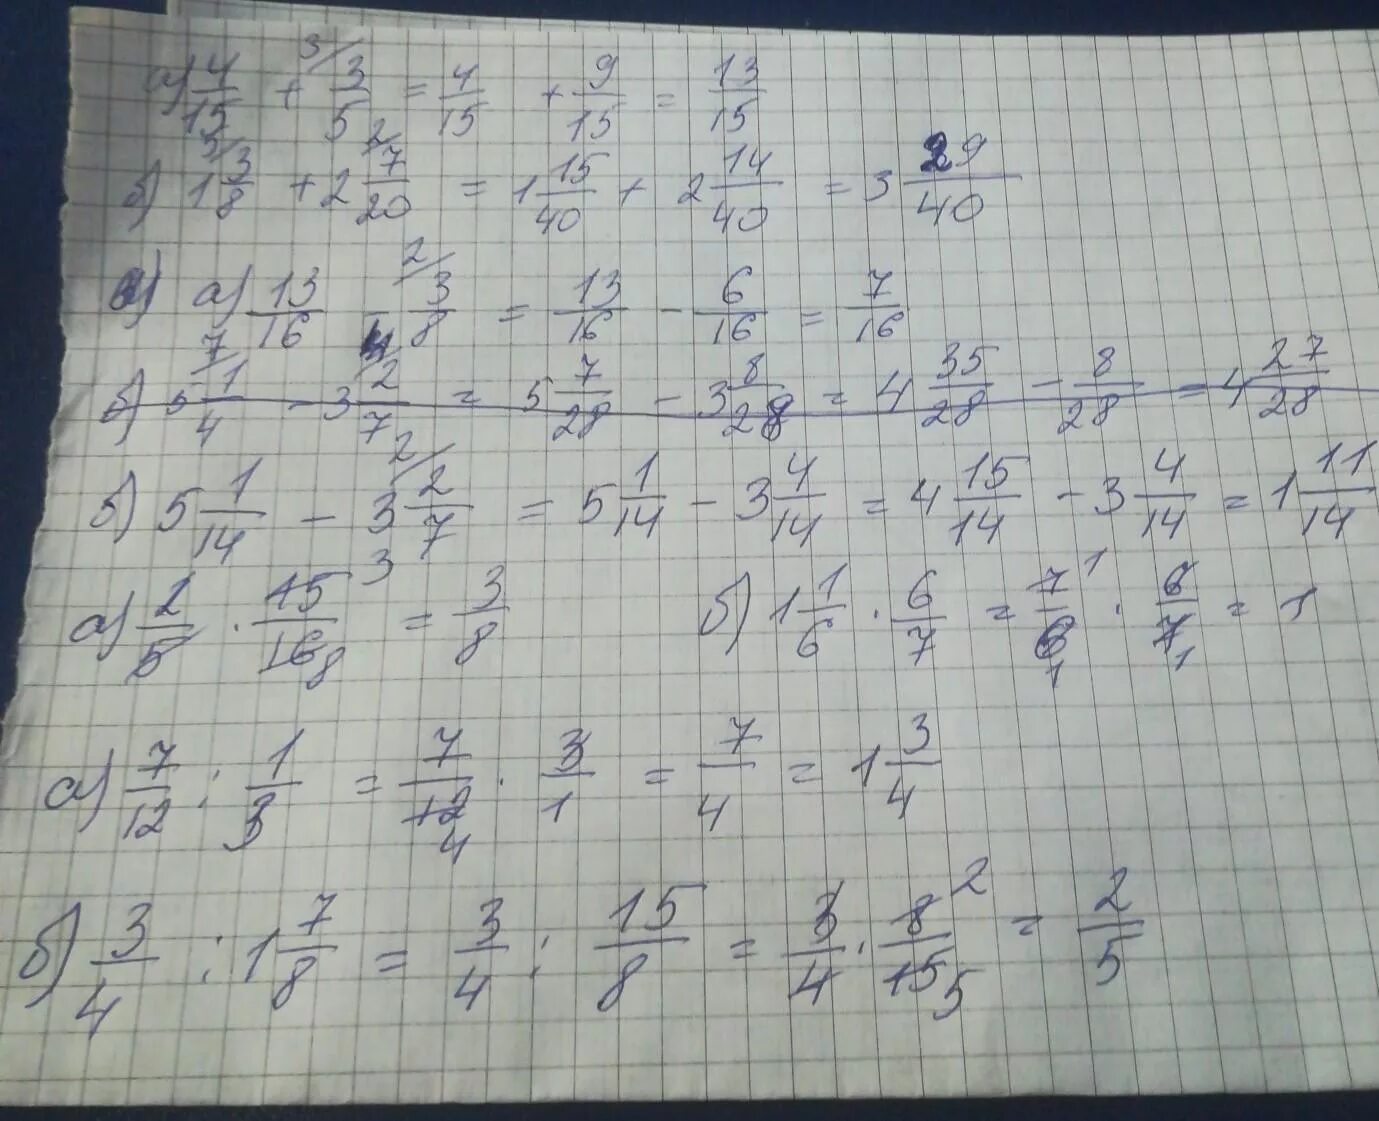 а) 4/15 + 3/ 3/5 = 4/15 + 9/15 = 13/15
б) 1 5/ 3/8 + 2 2/ 7/20 = 1 15/40 + 2 14/40 = 3 29/40
а) 13/16 - 2/ 3/8 = 13/16 - 6/16 = 7/16
б) 5 7/ 1/4 - 3 4/ 2/7 = 5 7/28 - 3 8/28 = 4 35/28 - 8/28 = 4 27/28
б) 5 1/14 - 3 2/ 2/7 = 5 1/14 - 3 4/14 = 4 15/14 - 3 4/14 = 1 11/14
а) 2/5 · 15 3/16 8 = 3/8 б) 1 1/6 · 6/7 = 7 1/6 1 · 6/7 1 = 1
а) 7/12 : 1/3 = 7/12 4 · 3/1 = 7/4 = 1 3/4
б) 3/4 : 1 7/8 = 3/4 : 15/8 = 3/4 · 8 2/15 5 = 2/5